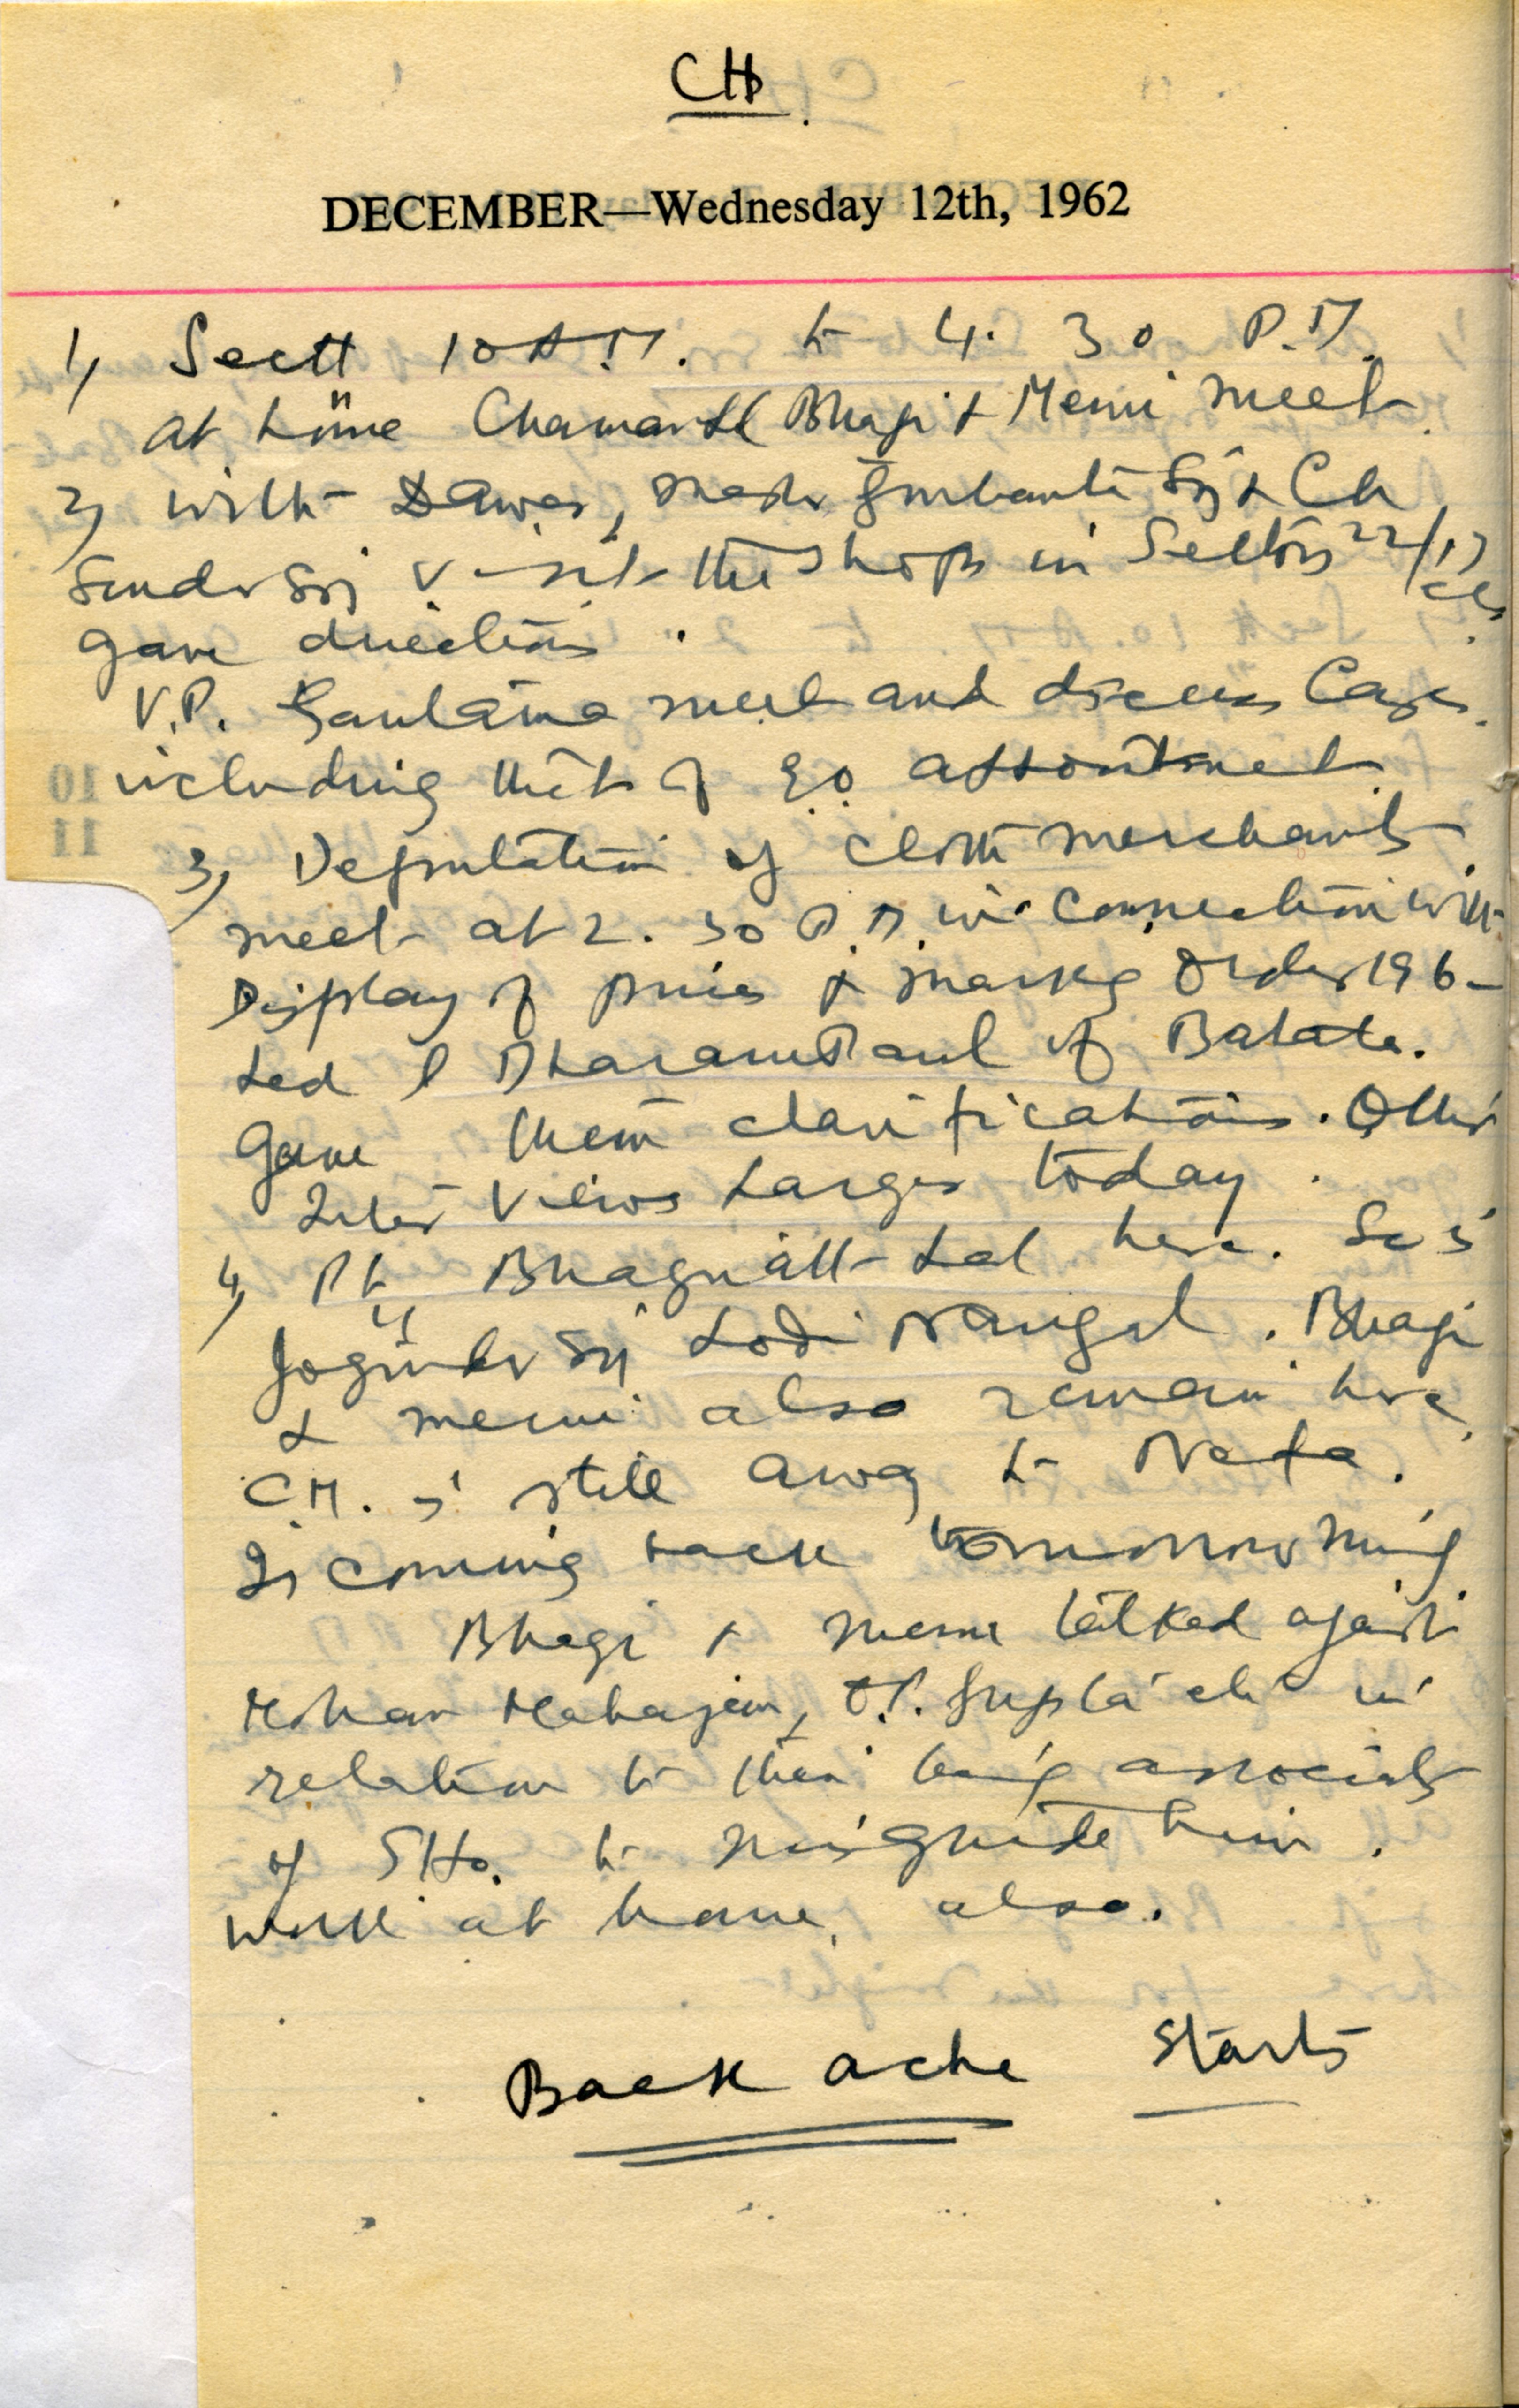 CHD.
DECEMBER—Wednesday 12th, 1962
1) Sectt 10 A.M. to 4. 30 P.M.
at home Chaman Lal Bhagi & Memi meet.
2) with Dawer, Gurbanta Sgh & Ch
Sunder Sgh visit the shops in Sectors 22/17
gave directions.
V.P. Gautama meet and discuss Cases
including that of
3) Deputation of cloth merchants
meet at 2. 30 P.M. in connection with
Display of prices & marking Order 196-
Led by Dharam Paul of Batala.
Gave them clarifications. Other
Inter views larger today.
4) Pt. Bhagnath Lal here. So is
Joginder Sgh Lodi Nangal. Bhagi
& memi also remain here.
C.M. is still away to Nefa.
Is coming back tomorrow
Bhagi & memi talked against
Mohan Mahajan, O.P. Gupta etc in
relation to their being associates
of to misguide him.
work at home also.
Back ache starts
10
11